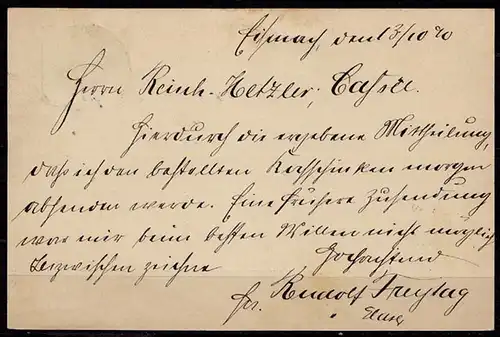 Eisenach, den 13/10 90
Herrn Reinh. Hetzler, Cassel.
Hierdurch die ergebene Mittheilung,
daß ich den bestellten Kochschinken morgen
absenden werde. Eine frühere Zusendung
war mir beim besten Willen nicht möglich
Inzwischen zeichne Hochachtend
Rudolf Freytag